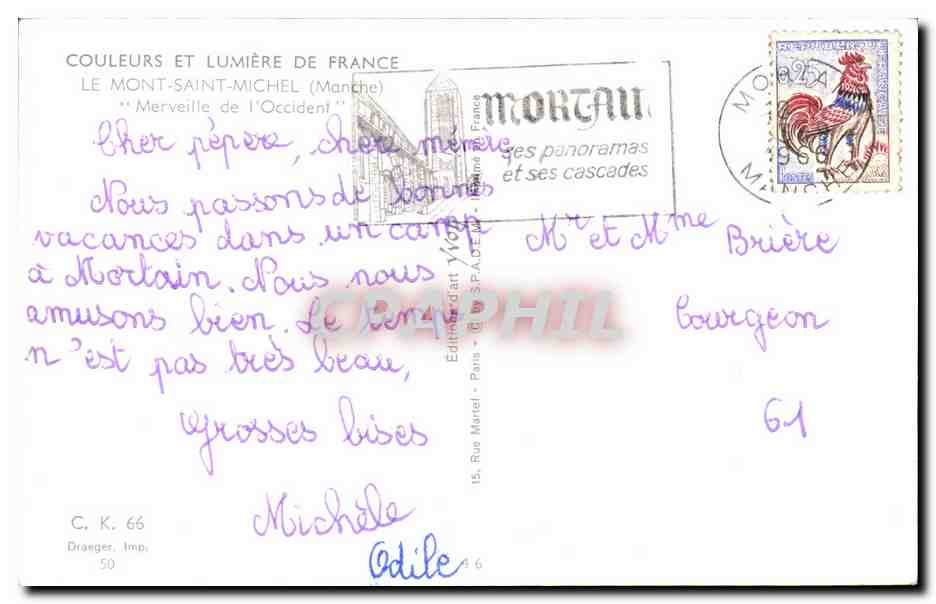 COULEURS ET LUMIÈRE DE FRANCE
LE MONT-SAINT-MICHEL (Manche)
"Merveille de l'Occident"
Cher pépère, chère mémère
Nous passons de bonnes
vacances dans un camp
à Mortain. Nous nous
amusons bien. Le temps
n'est pas très beau,
Grosses bises
Michèle
Odile
C. K. 66
Draeger, Imp.
50
Éditions d'art Yvon
15, Rue Martel - Paris -
S.P.A.D.E.M. -
France
MORTAIN
ses panoramas
et ses cascades
MANCHE
Mr et Mme Brière
Courgeon
61
CPAPHIL